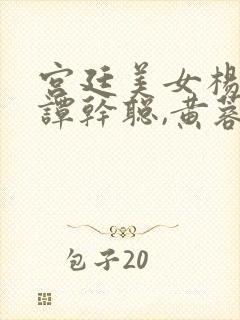 宫廷美女楊
譚幹聪,黄蓉
包子20